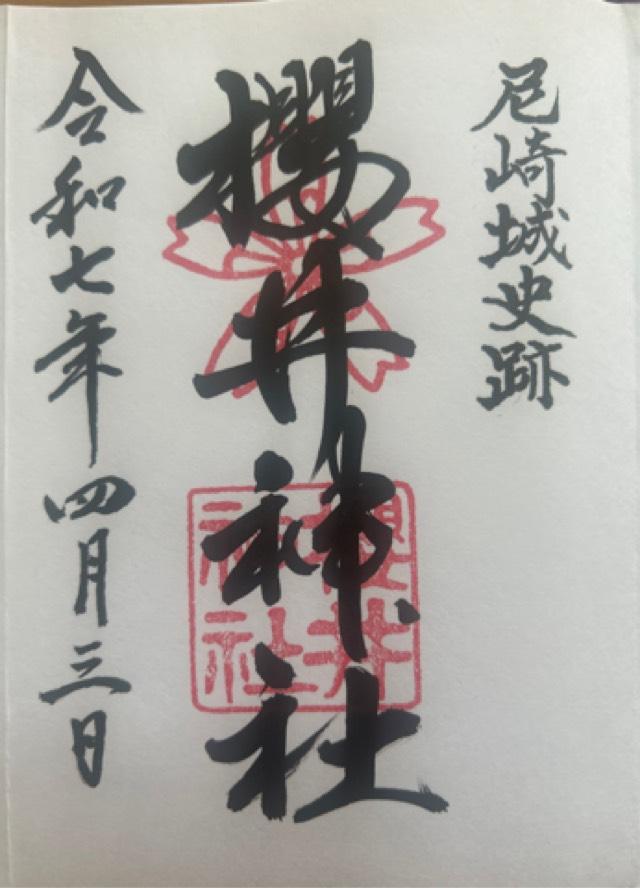 尼崎城史跡
櫻井神社
櫻井
神社
令和七年四月三日